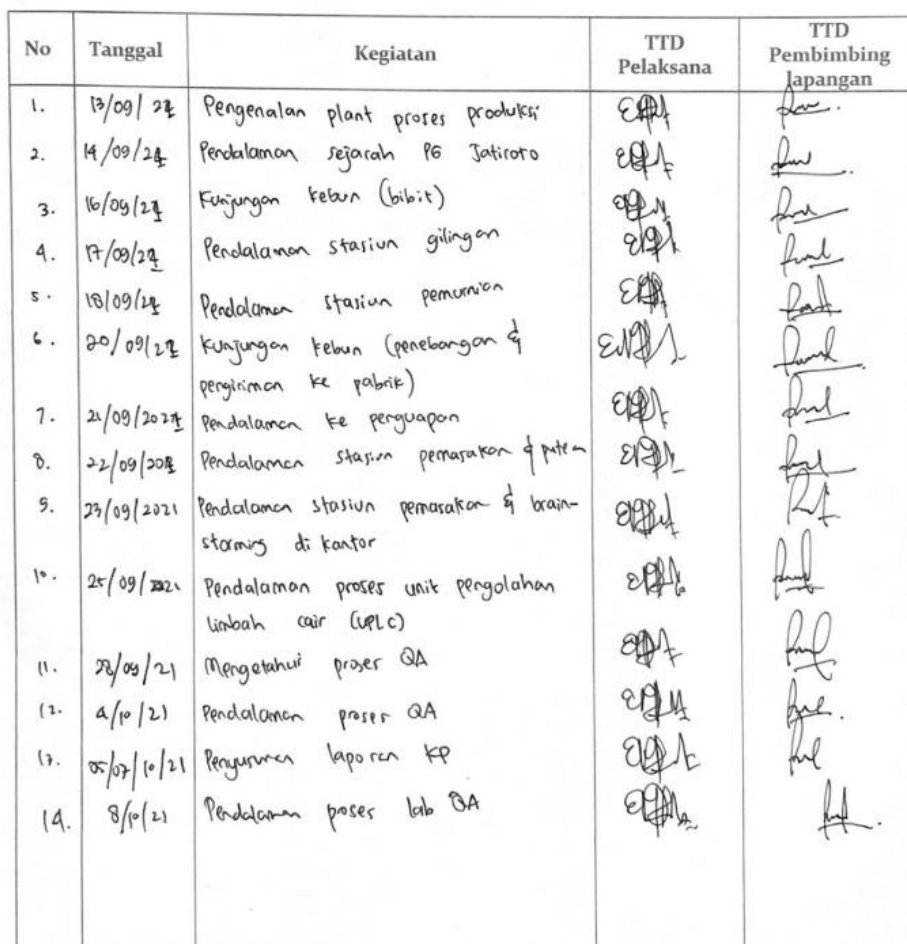 No Tanggal Kegiatan TTD Pelaksana TTD Pembimbing lapangan
1. 13/09/21 Pengenalan plant proses produksi
2. 14/09/21 Pendalaman sejarah PG Jatiroto
3. 16/09/21 Kunjungan kebun (bibit)
4. 17/09/21 Pendalaman stasiun gilingan
5. 18/09/21 Pendalaman stasiun pemurnian
6. 20/09/21 Kunjungan kebun (penebangan &
pengiriman ke pabrik)
7. 21/09/2021 Pendalaman ke penguapan
8. 22/09/2021 Pendalaman stasiun pemasakan &
9. 23/09/2021 Pendalaman stasiun pemasakan & brain-
storming di kantor
10. 25/09/2021 Pendalaman proses unit pengolahan
limbah cair (UPLC)
11. 28/09/21 Mengetahui proses QA
12. 4/10/21 Pendalaman proses QA
13. 05/07/10/21 Penyusunan laporan KP
14. 8/10/21 Pendalaman proses lab QA